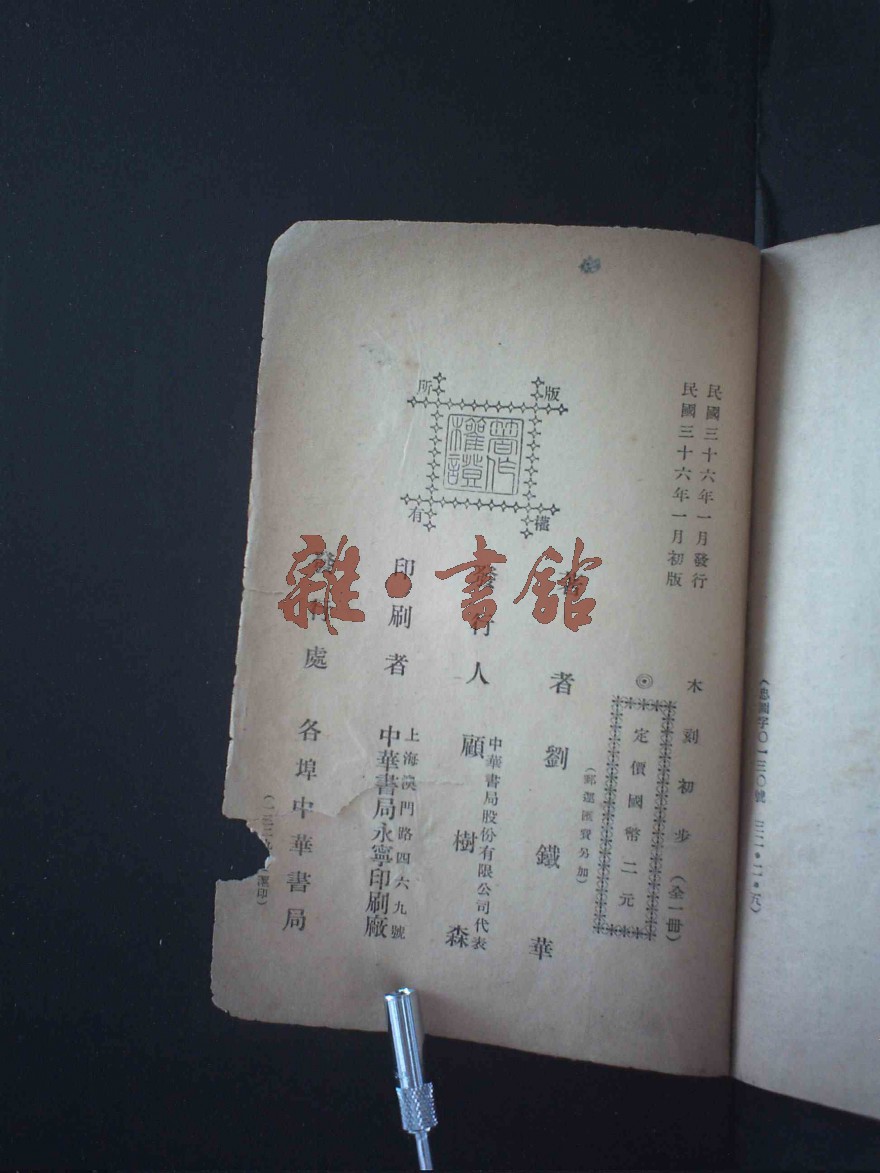 民國三十六年一月發行
民國三十六年一月初版
木刻初步（全一冊）
◎定價國幣二元
（郵運匯費另加）
版權所有
著作權證
著者 劉鐵華
發行人 中華書局股份有限公司代表
顧樹森
印刷者 上海澳門路四六九號
中華書局永寧印刷廠
發行處 各埠中華書局
雜·書館